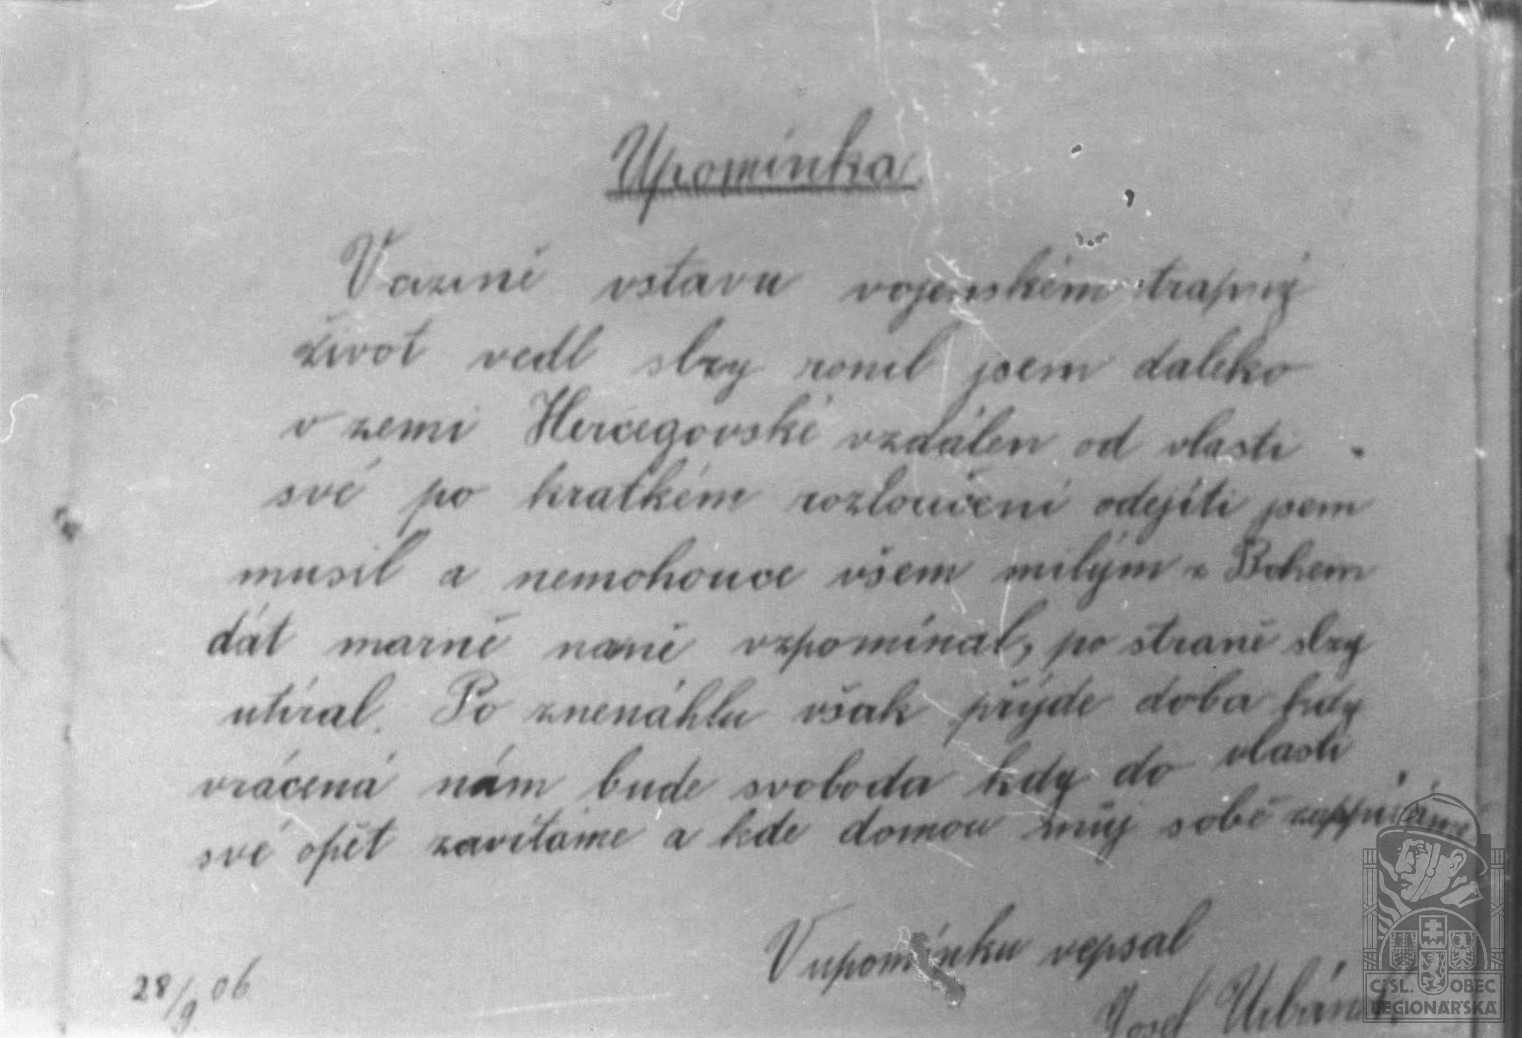 Upomínka
Vazně vstavu vojenském trapný
život vedl slzy ronil jsem daleko
v zemi Hercegovské vzdálen od vlasti
své po kratkém rozloučení odejíti jsem
musil a nemohouce všem milým z Bohem
dát marně naně vzpomínal, po straně slzy
utíral. Po znenáhlu však příjde doba kdy
vrácená nám bude svoboda kdy do vlasti
své opět zavítáme a kde domou můj sobě
V upomínku vepsal
Josef
28/9 06
ČSL. OBEC
LEGIONÁŘSKÁ